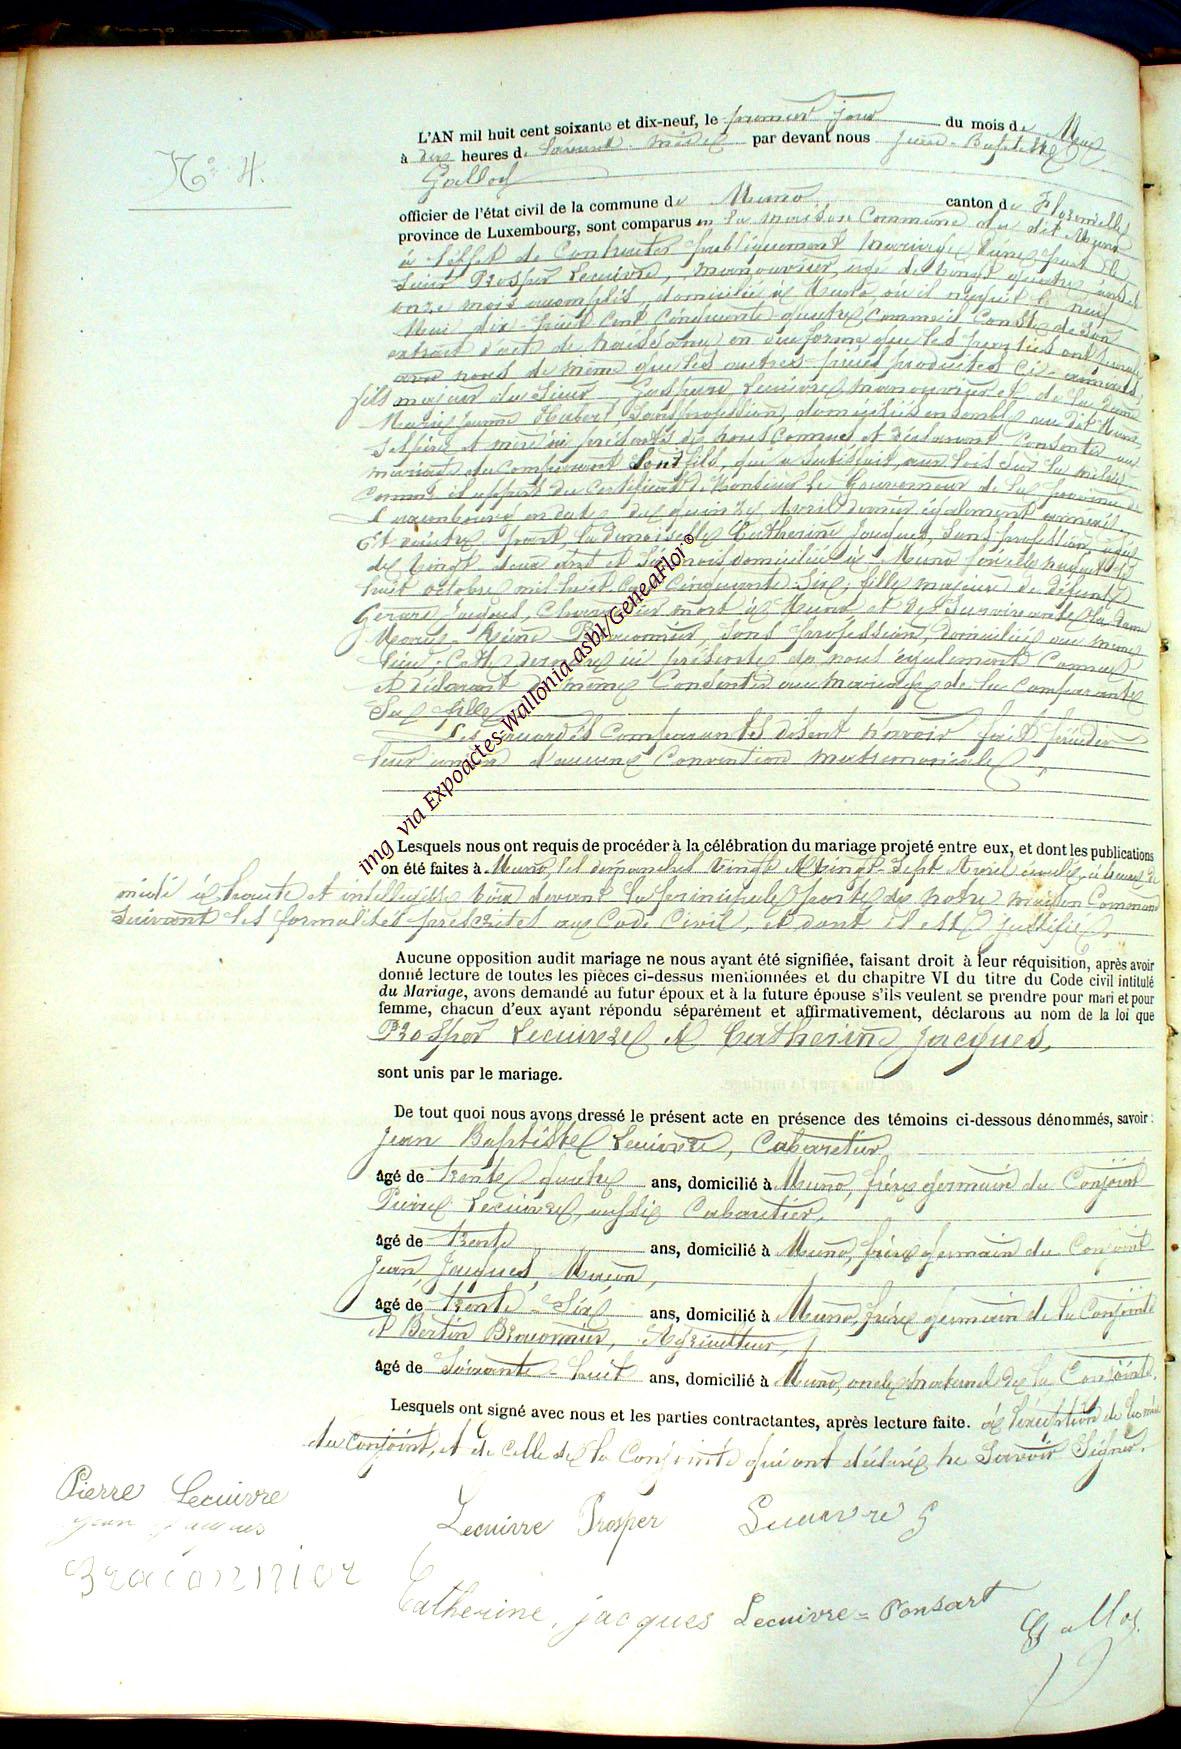 N° 4.
L'AN mil huit cent soixante et dix-neuf, le premier jour du mois de Mai
à dix heures du par devant nous Jean-Baptiste
Galloy
officier de l'état civil de la commune de Muno canton de Florenville
province de Luxembourg, sont comparus en la maison Commune du dit Muno
à l'effet de Contracter publiquement mariage, d'une part le
Sieur Prosper Lecuivre, manouvrier, âgé de vingt quatre ans et
onze mois accomplis, domicilié à Muno, où il naquit le neuf
Mai dix-huit Cent Cinquante-quatre Comme il Conste de son
extrait d'acte de naissance en due forme que les parties ont
nous de même que les autres pièces produites ci-annexées,
fils majeur du Sieur Gaspard Lecuivre, manouvrier et de la dame
Marie Jeanne Hubert, Sans profession, domiciliés ensemble au dit Muno,
ses père et mère ici présents de nous Connus et déclarant Consentir au
mariage du Comparant leur fils, qui a Satisfait aux lois sur la milice
Comme il appert du Certificat de Monsieur Le Gouverneur de la province de
Luxembourg en date du quinze Avril dernier également annexé.
Et d'autre part, la demoiselle Catherine Jacques, Sans profession, âgée
de vingt-deux ans et Six mois domiciliée à Muno où elle naquit le
huit octobre mil huit Cent Cinquante-Six, fille majeure du défunt
Gérard Jacques, mort à Muno et de Survivante la dame
Marie-Reine Braconnier, Sans profession, domiciliée au même
lieu; Cette dernière ici présente de nous également Connue
et déclarant de même Consentir au mariage de la Comparante
Sa fille.
Les Comparants disent n'avoir fait
leur union d'aucune Convention matrimoniale.
Lesquels nous ont requis de procéder à la célébration du mariage projeté entre eux, et dont les publications
on été faites à Muno, les dimanches vingt et vingt-Sept Avril écoulé, à heure de
midi à haute et intelligible voix devant la principale porte de notre maison Commune
Suivant les formalités prescrites au Code Civil, et dont il est justifié.
Aucune opposition audit mariage ne nous ayant été signifiée, faisant droit à leur réquisition, après avoir
donné lecture de toutes les pièces ci-dessus mentionnées et du chapitre VI du titre du Code civil intitulé
du Mariage, avons demandé au futur époux et à la future épouse s'ils veulent se prendre pour mari et pour
femme, chacun d'eux ayant répondu séparément et affirmativement, déclarons au nom de la loi que
Prosper Lecuivre et Catherine Jacques,
sont unis par le mariage.
De tout quoi nous avons dressé le présent acte en présence des témoins ci-dessous dénommés, savoir :
Jean Baptiste Lecuivre, Cabaretier
âgé de trente quatre ans, domicilié à Muno, frère germain du Conjoint
Pierre Lecuivre, aussi Cabaretier,
âgé de trente ans, domicilié à Muno, frère germain du Conjoint
Jean Jacques, Maçon,
âgé de trente-Six ans, domicilié à Muno, frère germain de la Conjointe
et Bertin Braconnier, Agriculteur,
âgé de Soixante-huit ans, domicilié à Muno, oncle maternel de la Conjointe.
Lesquels ont signé avec nous et les parties contractantes, après lecture faite. à l'exception de la mère
du Conjoint, et de celle de la Conjointe qui ont déclaré ne Savoir Signer.
Pierre Lecuivre
Jean Jacques
Lecuivre Prosper Lecuivre G
Braconnier
Catherine, jacques Lecuivre = Ponsart
Galloy
img via Expoactes-Wallonia-asbl/GeneaFloi©